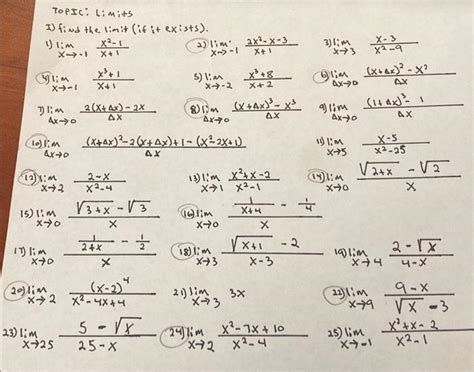 TOPIC: Limits
I) find the limit (if it exists).
1) lim x→-1 (x²-1)/(x+1) 2) lim x→-1 (2x²-x-3)/(x+1) 3) lim x→3 (x-3)/(x²-9)
4) lim x→-1 (x³+1)/(x+1) 5) lim x→-2 (x³+8)/(x+2) 6) lim Δx→0 ((x+Δx)²-x²)/Δx
7) lim Δx→0 (2(x+Δx)-2x)/Δx 8) lim Δx→0 ((x+Δx)³-x³)/Δx 9) lim Δx→0 ((1+Δx)³-1)/Δx
10) lim Δx→0 ((x+Δx)²-2(x+Δx)+1-(x²-2x+1))/Δx 11) lim x→5 (x-5)/(x²-25)
12) lim x→2 (2-x)/(x²-4) 13) lim x→1 (x²+x-2)/(x²-1) 14) lim x→0 (√(2+x) - √2)/x
15) lim x→0 (√(3+x) - √3)/x 16) lim x→0 (1/(x+4) - 1/4)/x
17) lim x→0 (1/(2+x) - 1/2)/x 18) lim x→3 (√(x+1) - 2)/(x-3) 19) lim x→4 (2-√x)/(4-x)
20) lim x→2 (x-2)⁴/(x²-4x+4) 21) lim x→3 3x 22) lim x→9 (9-x)/(√x-3)
23) lim x→25 (5-√x)/(25-x) 24) lim x→2 (x²-7x+10)/(x²-4) 25) lim x→-1 (x²+x-2)/(x²-1)